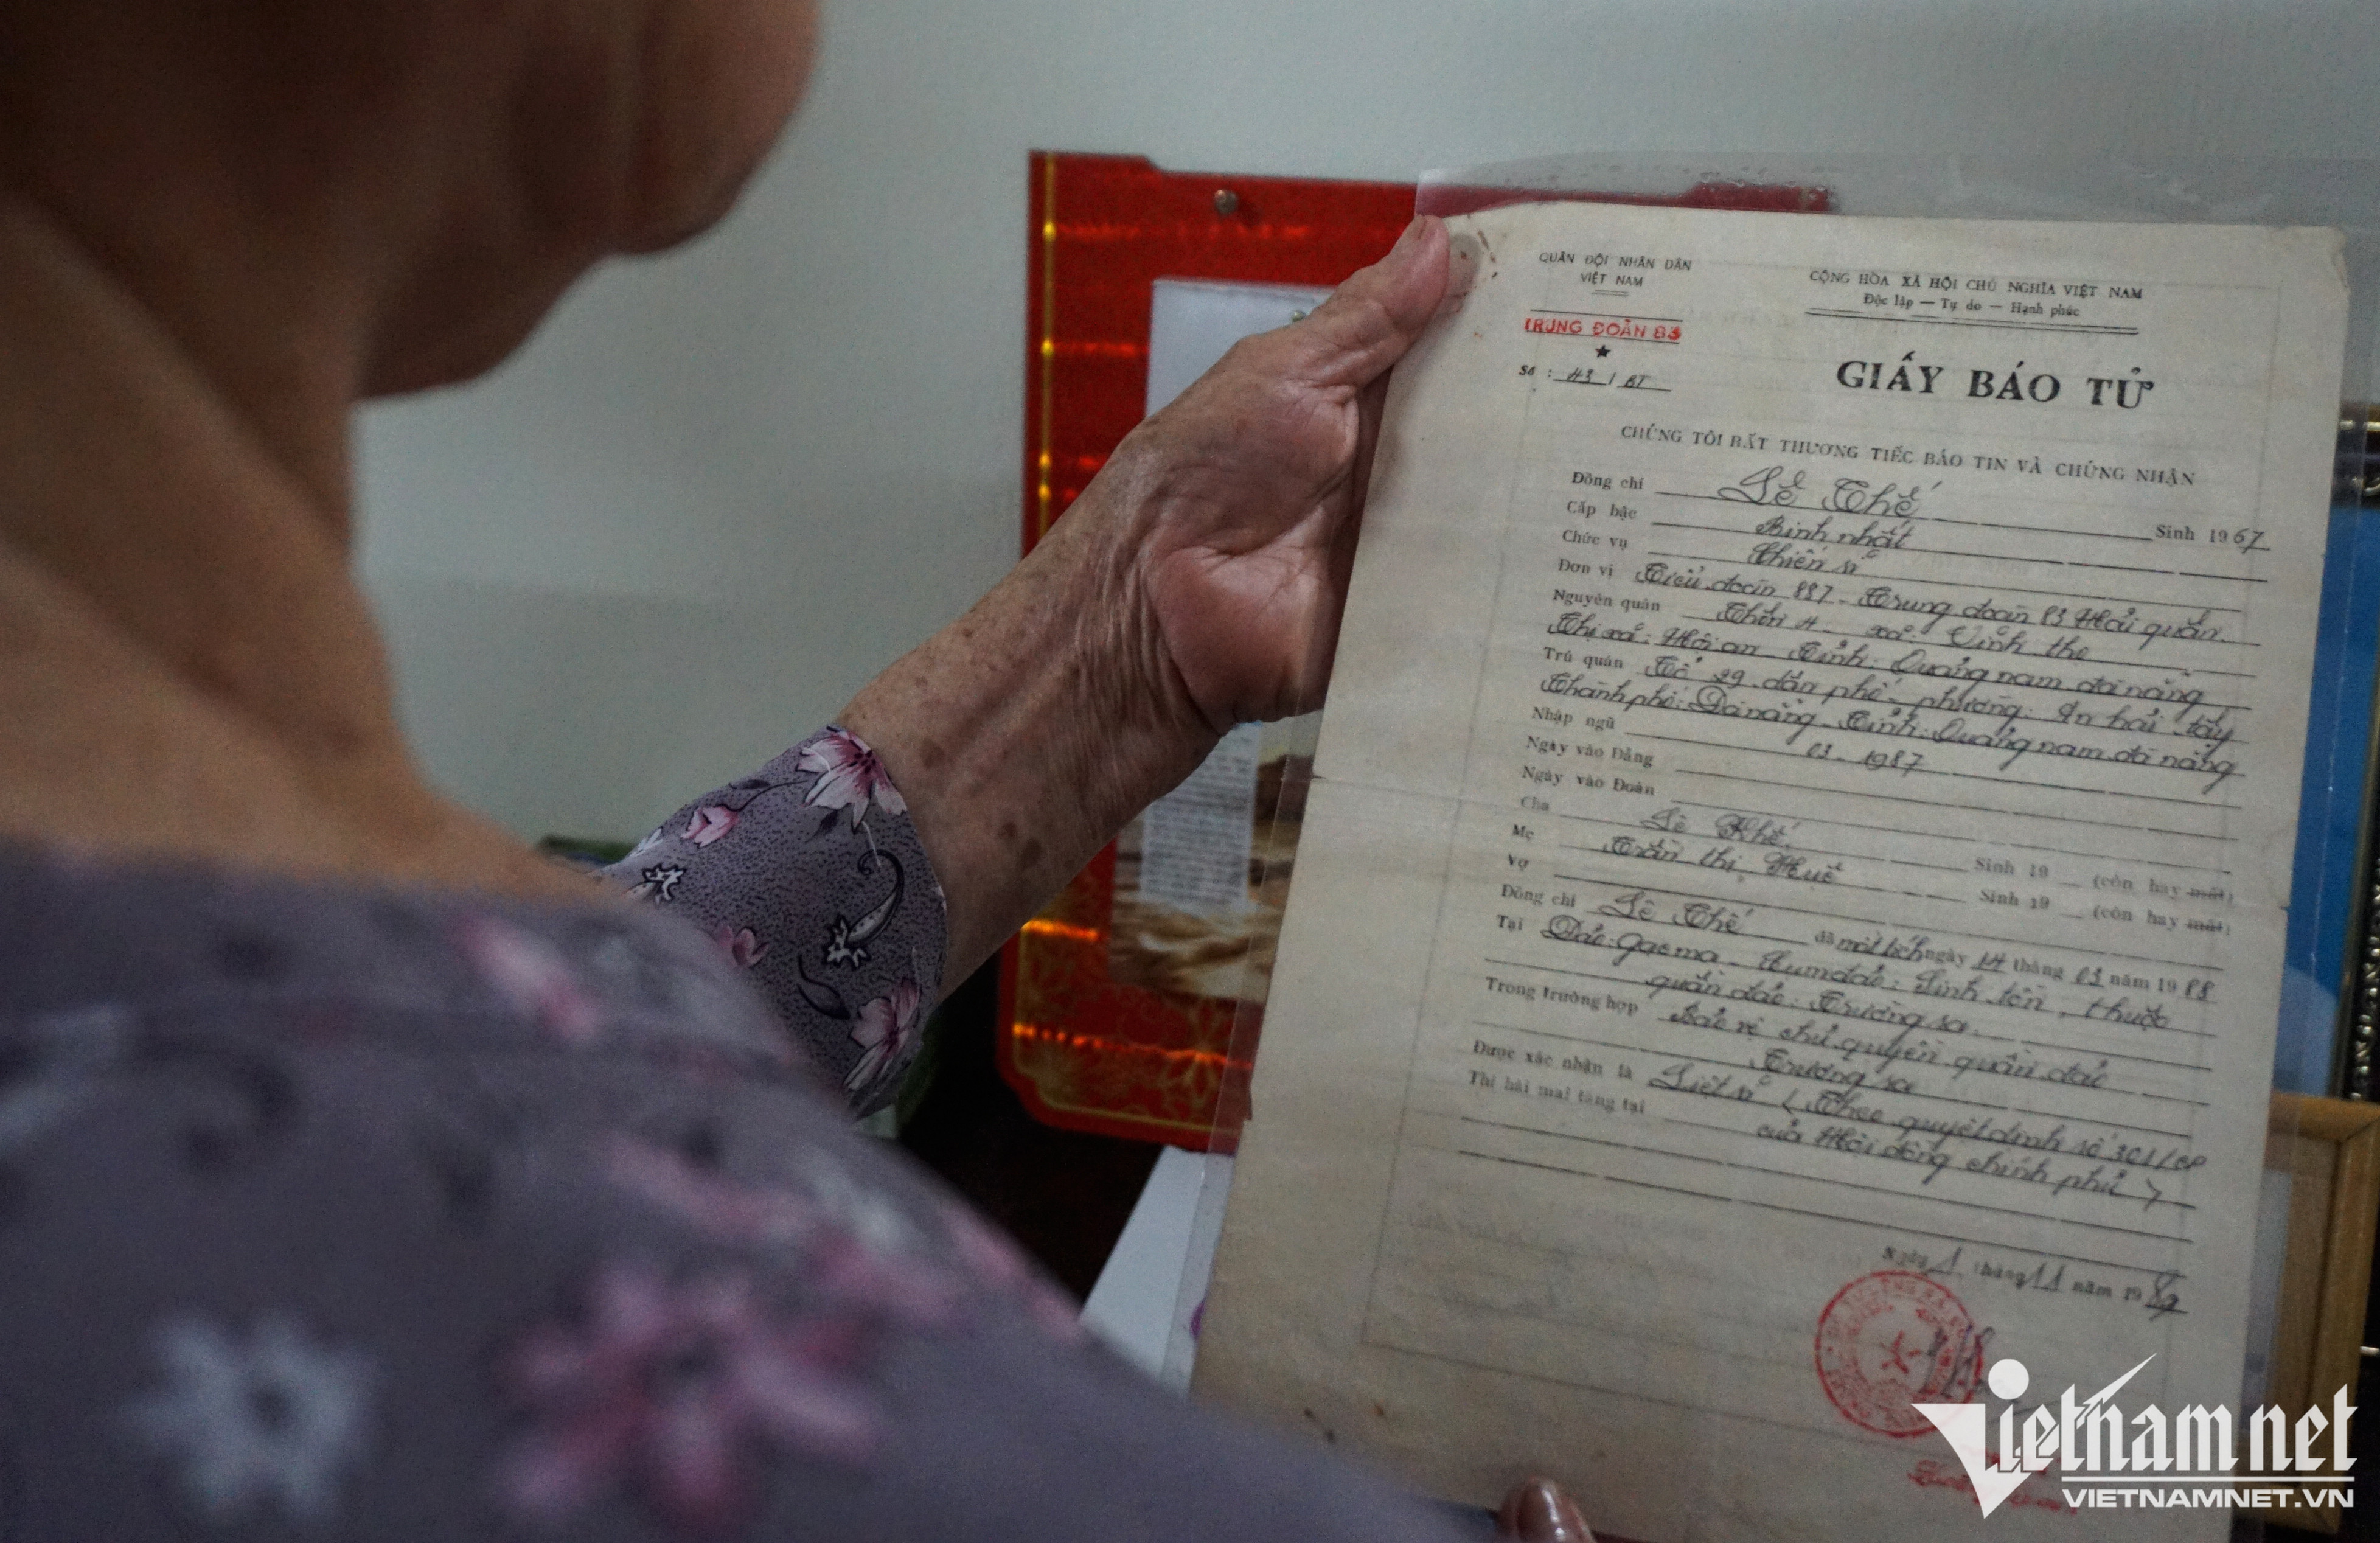 QUÂN ĐỘI NHÂN DÂN
VIỆT NAM
TRUNG ĐOÀN 83
Số : 43 / BT
CỘNG HÒA XÃ HỘI CHỦ NGHĨA VIỆT NAM
Độc lập — Tự do — Hạnh phúc
GIẤY BÁO TỬ
CHÚNG TÔI RẤT THƯƠNG TIẾC BÁO TIN VÀ CHỨNG NHẬN
Đồng chí Lê Thế Sinh 1967
Cấp bậc Binh nhất
Chức vụ Chiến sĩ
Đơn vị Tiểu đoàn 887 - Trung đoàn 83 Hải quân
Nguyên quán Thôn 4 - xã: Cẩm
Thị xã: Hội an - Tỉnh: Quảng nam đà nẵng
Trú quán Tổ 29 dân phố - phường: An hải tây
Thành phố: Đà nẵng - Tỉnh: Quảng nam đà nẵng
Nhập ngũ 03 - 1987
Ngày vào Đảng
Ngày vào Đoàn
Cha Lê Sinh 19 (còn hay mất)
Mẹ Trần thị Huề Sinh 19 (còn hay mất)
Vợ
Đồng chí Lê Thế đã mất tích ngày 14 tháng 03 năm 1988
Tại Đảo: Gạc ma - Cụm đảo: Sinh tồn, thuộc
quần đảo: Trường sa.
Trong trường hợp Bảo vệ chủ quyền quần đảo
Trường sa
Được xác nhận là Liệt sĩ (Theo quyết định số 301/CP
của Hội đồng chính phủ)
Thi hài mai táng tại
Ngày 1 tháng 11 năm 1989
Vietnamnet
VIETNAMNET.VN